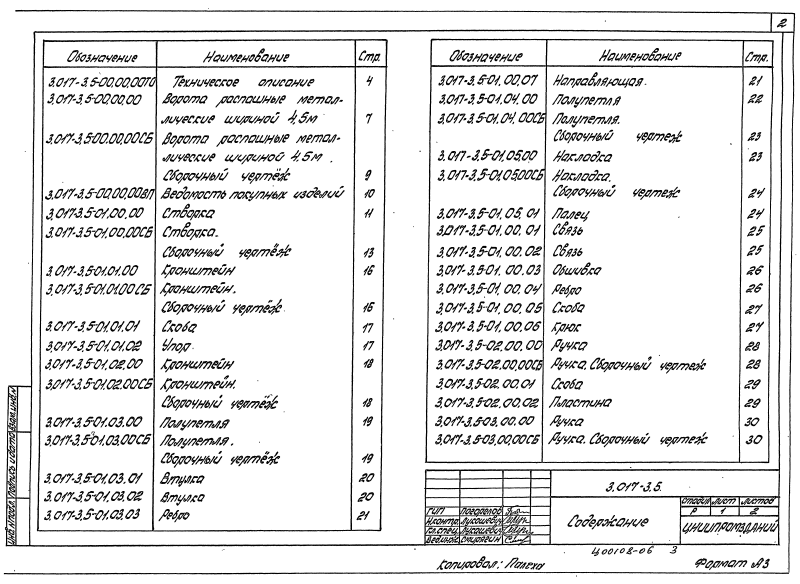 2
Обозначение Наименование Стр.
3.017-3.5-00.00.00ТО Техническое описание 4
3.017-3.5-00.00.00 Ворота распашные метал-
лические шириной 4,5м 7
3.017-3.5-00.00.00СБ Ворота распашные метал-
лические шириной 4,5м.
Сборочный чертёж 9
3.017-3.5-00.00.00ВП Ведомость покупных изделий 10
3.017-3.5-01.00.00 Створка 11
3.017-3.5-01.00.00СБ Створка.
Сборочный чертёж 13
3.017-3.5-01.01.00 Кронштейн 16
3.017-3.5-01.01.00СБ Кронштейн.
Сборочный чертёж 16
3.017-3.5-01.01.01 Скоба 17
3.017-3.5-01.01.02 Упор 17
3.017-3.5-01.02.00 Кронштейн 18
3.017-3.5-01.02.00СБ Кронштейн.
Сборочный чертёж 18
3.017-3.5-01.03.00 Полупетля 19
3.017-3.5-01.03.00СБ Полупетля.
Сборочный чертёж 19
3.017-3.5-01.03.01 Втулка 20
3.017-3.5-01.03.02 Втулка 20
3.017-3.5-01.03.03 Ребро 21
Обозначение Наименование Стр.
3.017-3.5-01.00.07 Направляющая. 21
3.017-3.5-01.04.00 Полупетля 22
3.017-3.5-01.04.00СБ Полупетля.
Сборочный чертеж 23
3.017-3.5-01.05.00 Накладка 23
3.017-3.5-01.05.00СБ Накладка.
Сборочный чертеж 24
3.017-3.5-01.05.01 Палец 24
3.017-3.5-01.00.01 Связь 25
3.017-3.5-01.00.02 Связь 25
3.017-3.5-01.00.03 Обшивка 26
3.017-3.5-01.00.04 Ребро 26
3.017-3.5-01.00.05 Скоба 27
3.017-3.5-01.00.06 Крюк 27
3.017-3.5-02.00.00 Ручка 28
3.017-3.5-02.00.00СБ Ручка. Сборочный чертеж 28
3.017-3.5-02.00.01 Скоба 29
3.017-3.5-02.00.02 Пластина 29
3.017-3.5-03.00.00 Ручка 30
3.017-3.5-03.00.00СБ Ручка. Сборочный чертеж 30
3.017-3.5
Стадия Лист Листов
Р 1 2
ГИП
Н.контр. Лукашевич
Гл.спец. Лукашевич
Вед.инж.
Содержание
ЦНИИПРОМЗДАНИЙ
Ц00108-06 3
Копировал: Формат А3
Инв.№подл. Подпись и дата Взам.инв.№